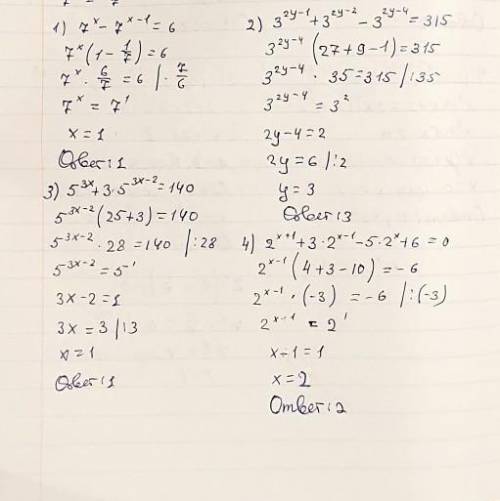 1) 7^x - 7^{x-1} = 6
7^x (1 - 1/7) = 6
7^x · 6/7 = 6 | · 7/6
7^x = 7^1
x = 1
Ответ: 1
2) 3^{2y-1} + 3^{2y-2} - 3^{2y-4} = 315
3^{2y-4} (27 + 9 - 1) = 315
3^{2y-4} · 35 = 315 | : 35
3^{2y-4} = 3^2
2y - 4 = 2
2y = 6 | : 2
y = 3
Ответ: 3
3) 5^{3x} + 3 · 5^{3x-2} = 140
5^{3x-2} (25 + 3) = 140
5^{3x-2} · 28 = 140 | : 28
5^{3x-2} = 5^1
3x - 2 = 1
3x = 3 | : 3
x = 1
Ответ: 1
4) 2^{x+1} + 3 · 2^{x-1} - 5 · 2^x + 6 = 0
2^{x-1} (4 + 3 - 10) = -6
2^{x-1} · (-3) = -6 | : (-3)
2^{x-1} = 2^1
x - 1 = 1
x = 2
Ответ: 2